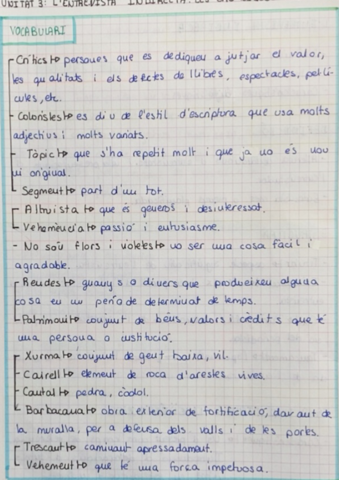 UNITAT 3: L'ENTREVISTA INDIRECTA: LES
VOCABULARI
Crítics↳ persones que es dediquen a jutjar el valor,
les qualitats i els defectes de llibres, espectacles, pel·lí-
cules, etc.
Coloristes↳ es diu de l'estil d'escriptura que usa molts
adjectius i molts variats.
Tòpic↳ que s'ha repetit molt i que ja no és nou
ni original.
Segment↳ part d'un tot.
Altruista↳ que és generós i desinteressat.
Vehemència↳ passió i entusiasme.
- No són flors i violetes↳ no ser una cosa fàcil i
agradable.
Rendes↳ guanys o diners que produeixen alguna
cosa en un període determinat de temps.
Patrimoni↳ conjunt de béns, valors i crèdits que té
una persona o institució.
Xurma↳ conjunt de gent baixa, vil.
Cairell↳ element de roca d'arestes vives.
Cantal↳ pedra, còdol.
Barbacana↳ obra exterior de fortificació, davant de
la muralla, per a defensa dels valls i de les portes.
Trescant↳ caminant apressadament.
Vehement↳ que té una força impetuosa.